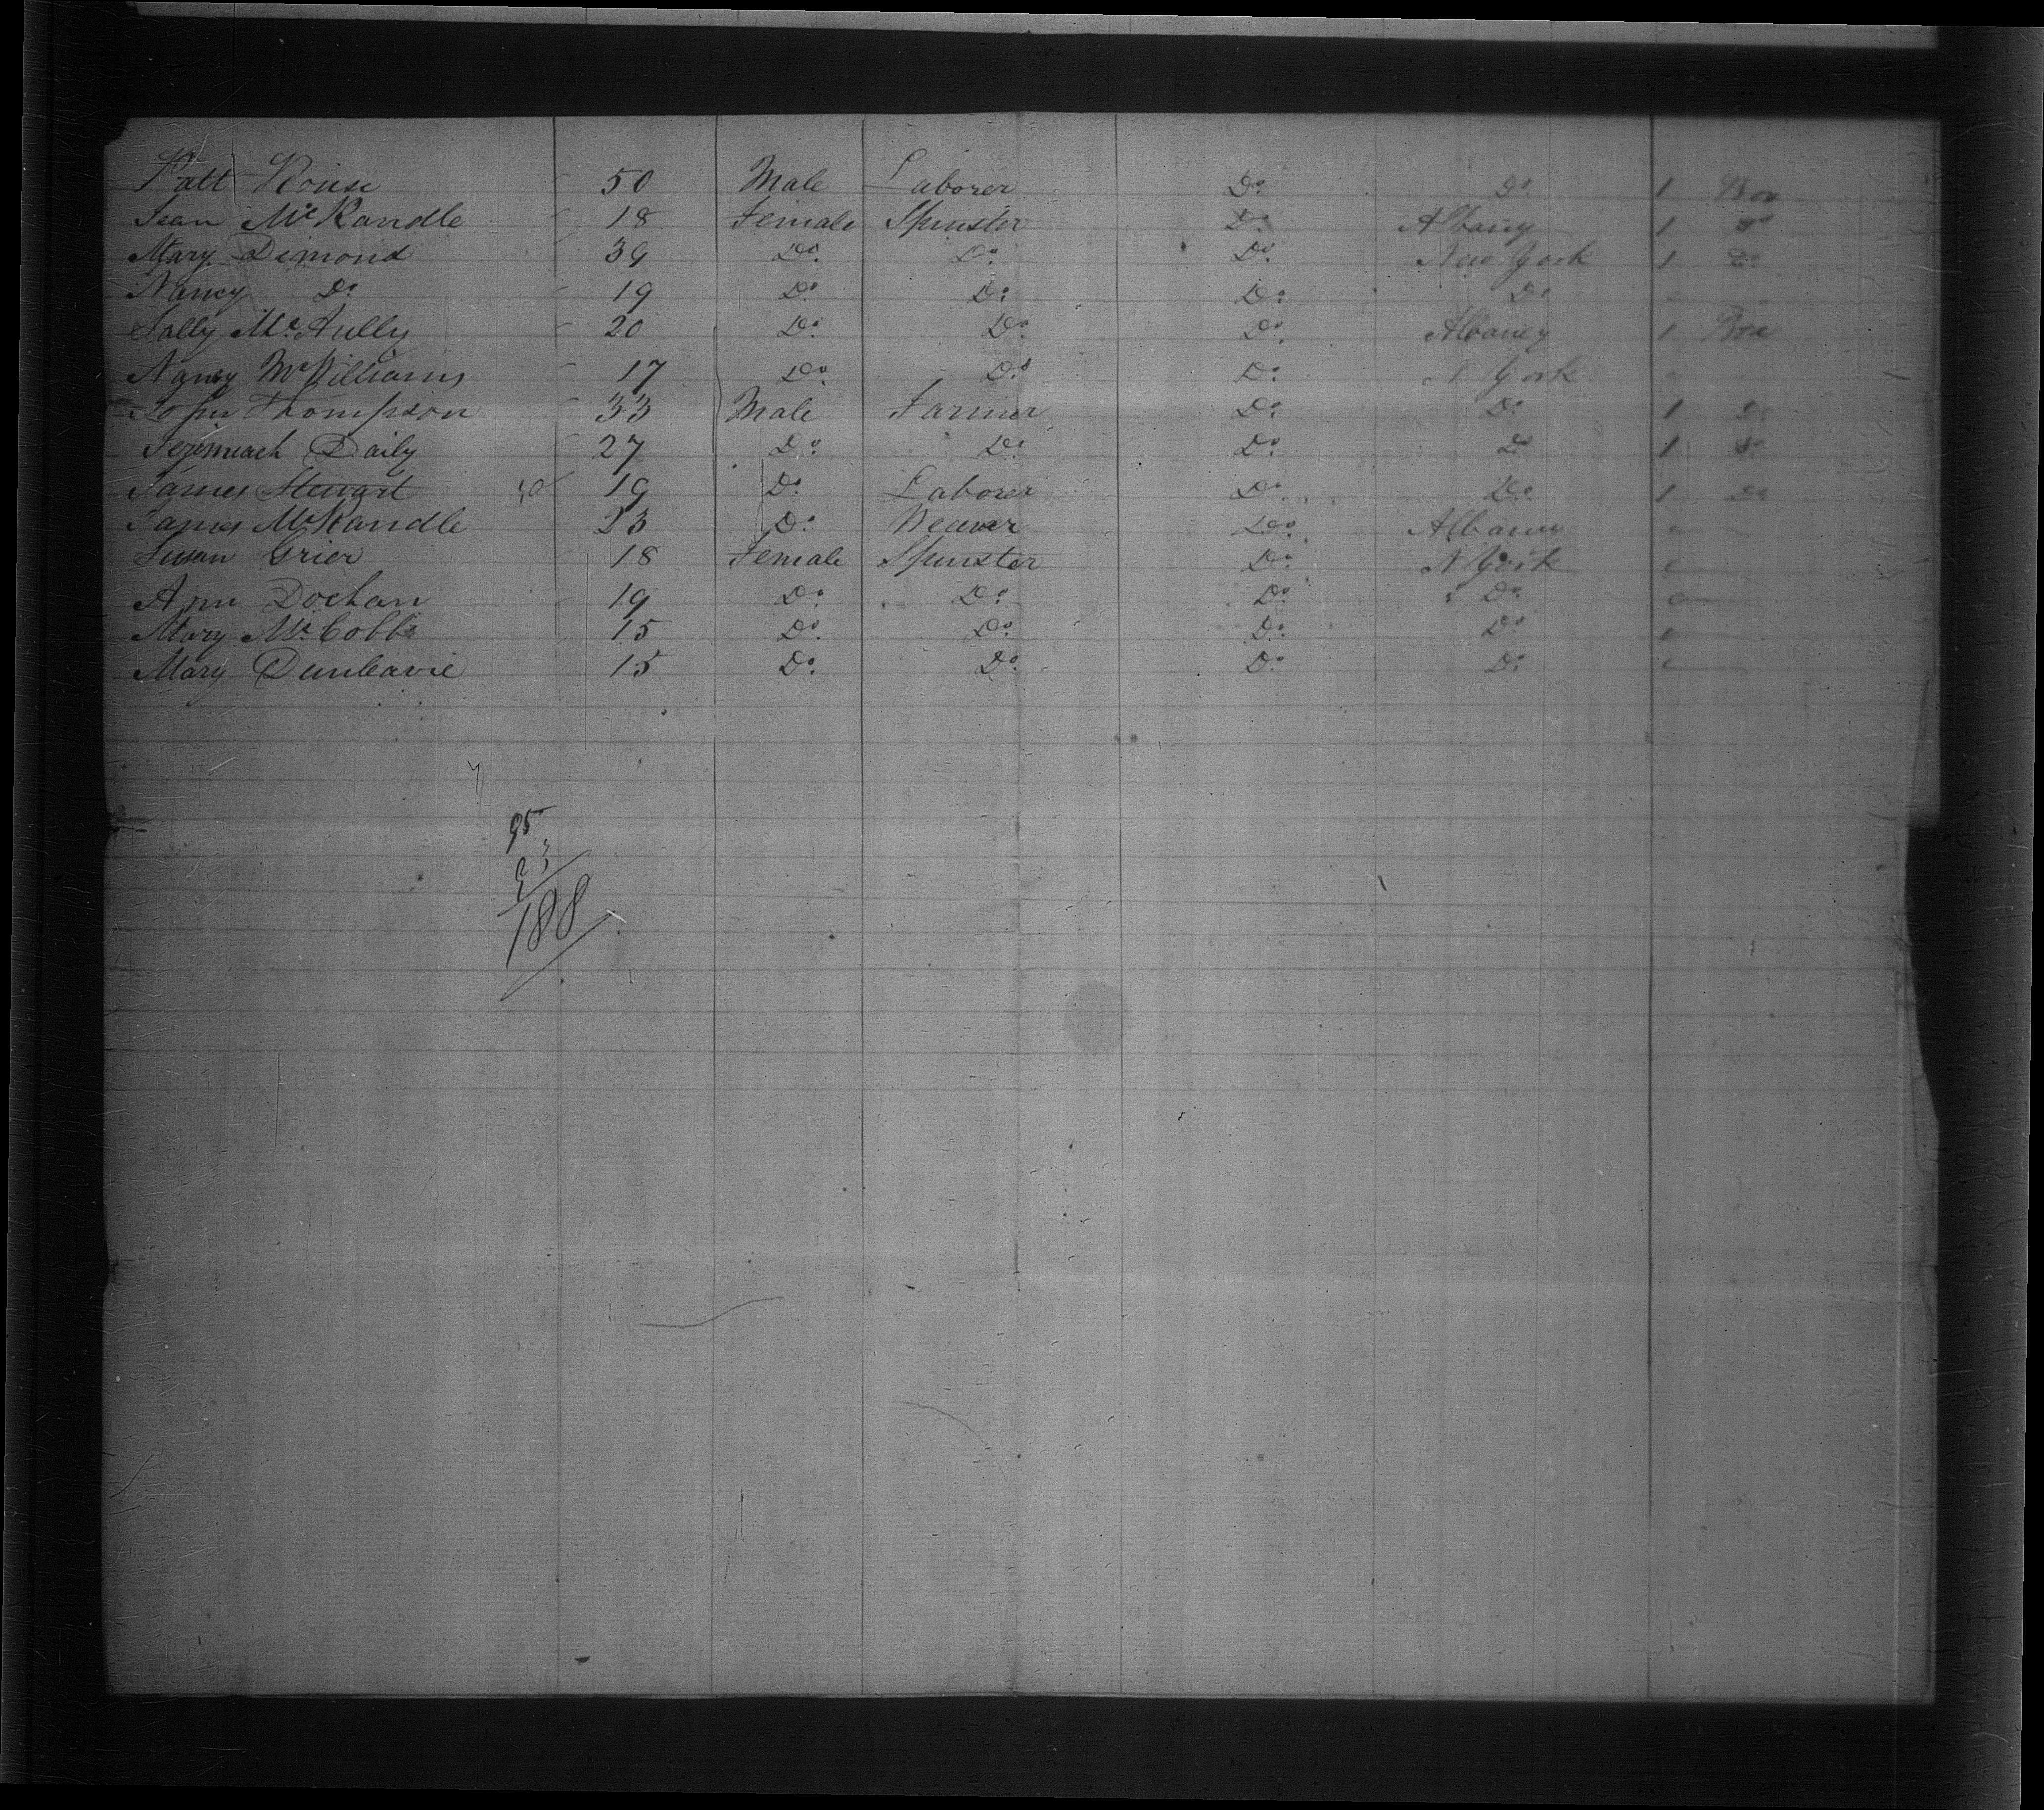 Patt Rouse 50 Male Laborer Do. Do. 1 Box
Jean McKandle 18 Female Spinster Do. Albany 1 Do
Mary Dimond 39 Do. Do. Do. New York 1 Do.
Nancy Do. 19 Do. Do. Do. Do.
Sally McAully 20 Do. Do. Do. Albaney 1 Box
Nancy McWilliams 17 Do. Do. Do. N York
John Thompson 33 Male Farmer Do. Do. 1 Do.
Jeremieach Daily 27 Do. Do. Do. Do 1 Do.
James Stewart 50 19 Do. Laborer Do. Do. 1 Do
James McKandle 23 Do. Weaver Do. Albany
Susan Grier 18 Female Spinster Do. N York
Ann Dochan 19 Do. Do. Do. Do.
Mary McCobb 15 Do. Do. Do. Do.
Mary Dunleavie 15 Do. Do. Do. Do.
95
93
188